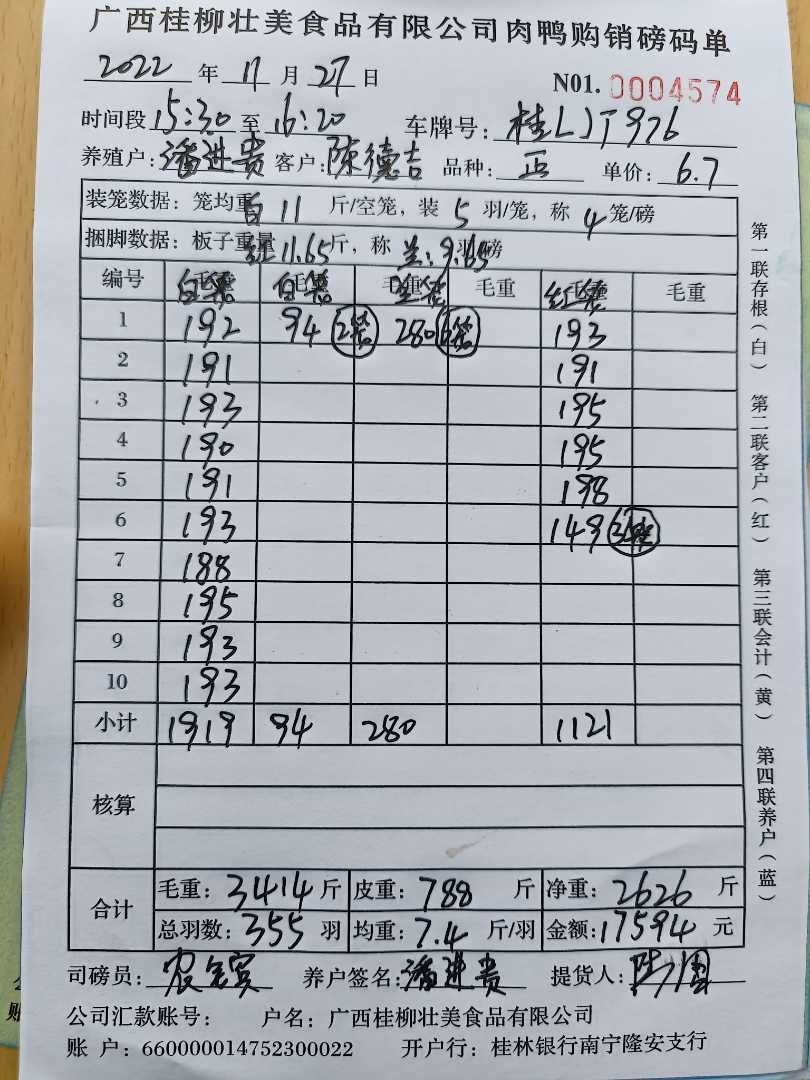 广西桂柳壮美食品有限公司肉鸭购销磅码单
2022 年 11 月 27 日 N01. 0004574
时间段 15:30 至 16:20 车牌号: 桂LJT976
养殖户: 潘进贵 客户: 陈德吉 品种: 正 单价: 6.7
装笼数据: 笼均重 白 11 斤/空笼, 装 5 羽/笼, 称 4 笼/磅
捆脚数据: 板子重量 红 11.65 斤, 称 兰: 9.65 羽/磅
编号 毛重 白袋 毛重 白袋 毛重 毛重 毛重 毛重
1 192 94 280 193
2 191 191
3 193 195
4 190 195
5 191 198
6 193 149
7 188
8 195
9 193
10 193
小计 1919 94 280 1121
核算
合计 毛重: 3414 斤 皮重: 788 斤 净重: 2626 斤
总羽数: 355 羽 均重: 7.4 斤/羽 金额: 17594 元
司磅员: 农全宾 养户签名: 潘进贵 提货人:
公司汇款账号: 户名: 广西桂柳壮美食品有限公司
账 户: 660000014752300022 开户行: 桂林银行南宁隆安支行
第一联存根(白) 第二联客户(红) 第三联会计(黄) 第四联养户(蓝)